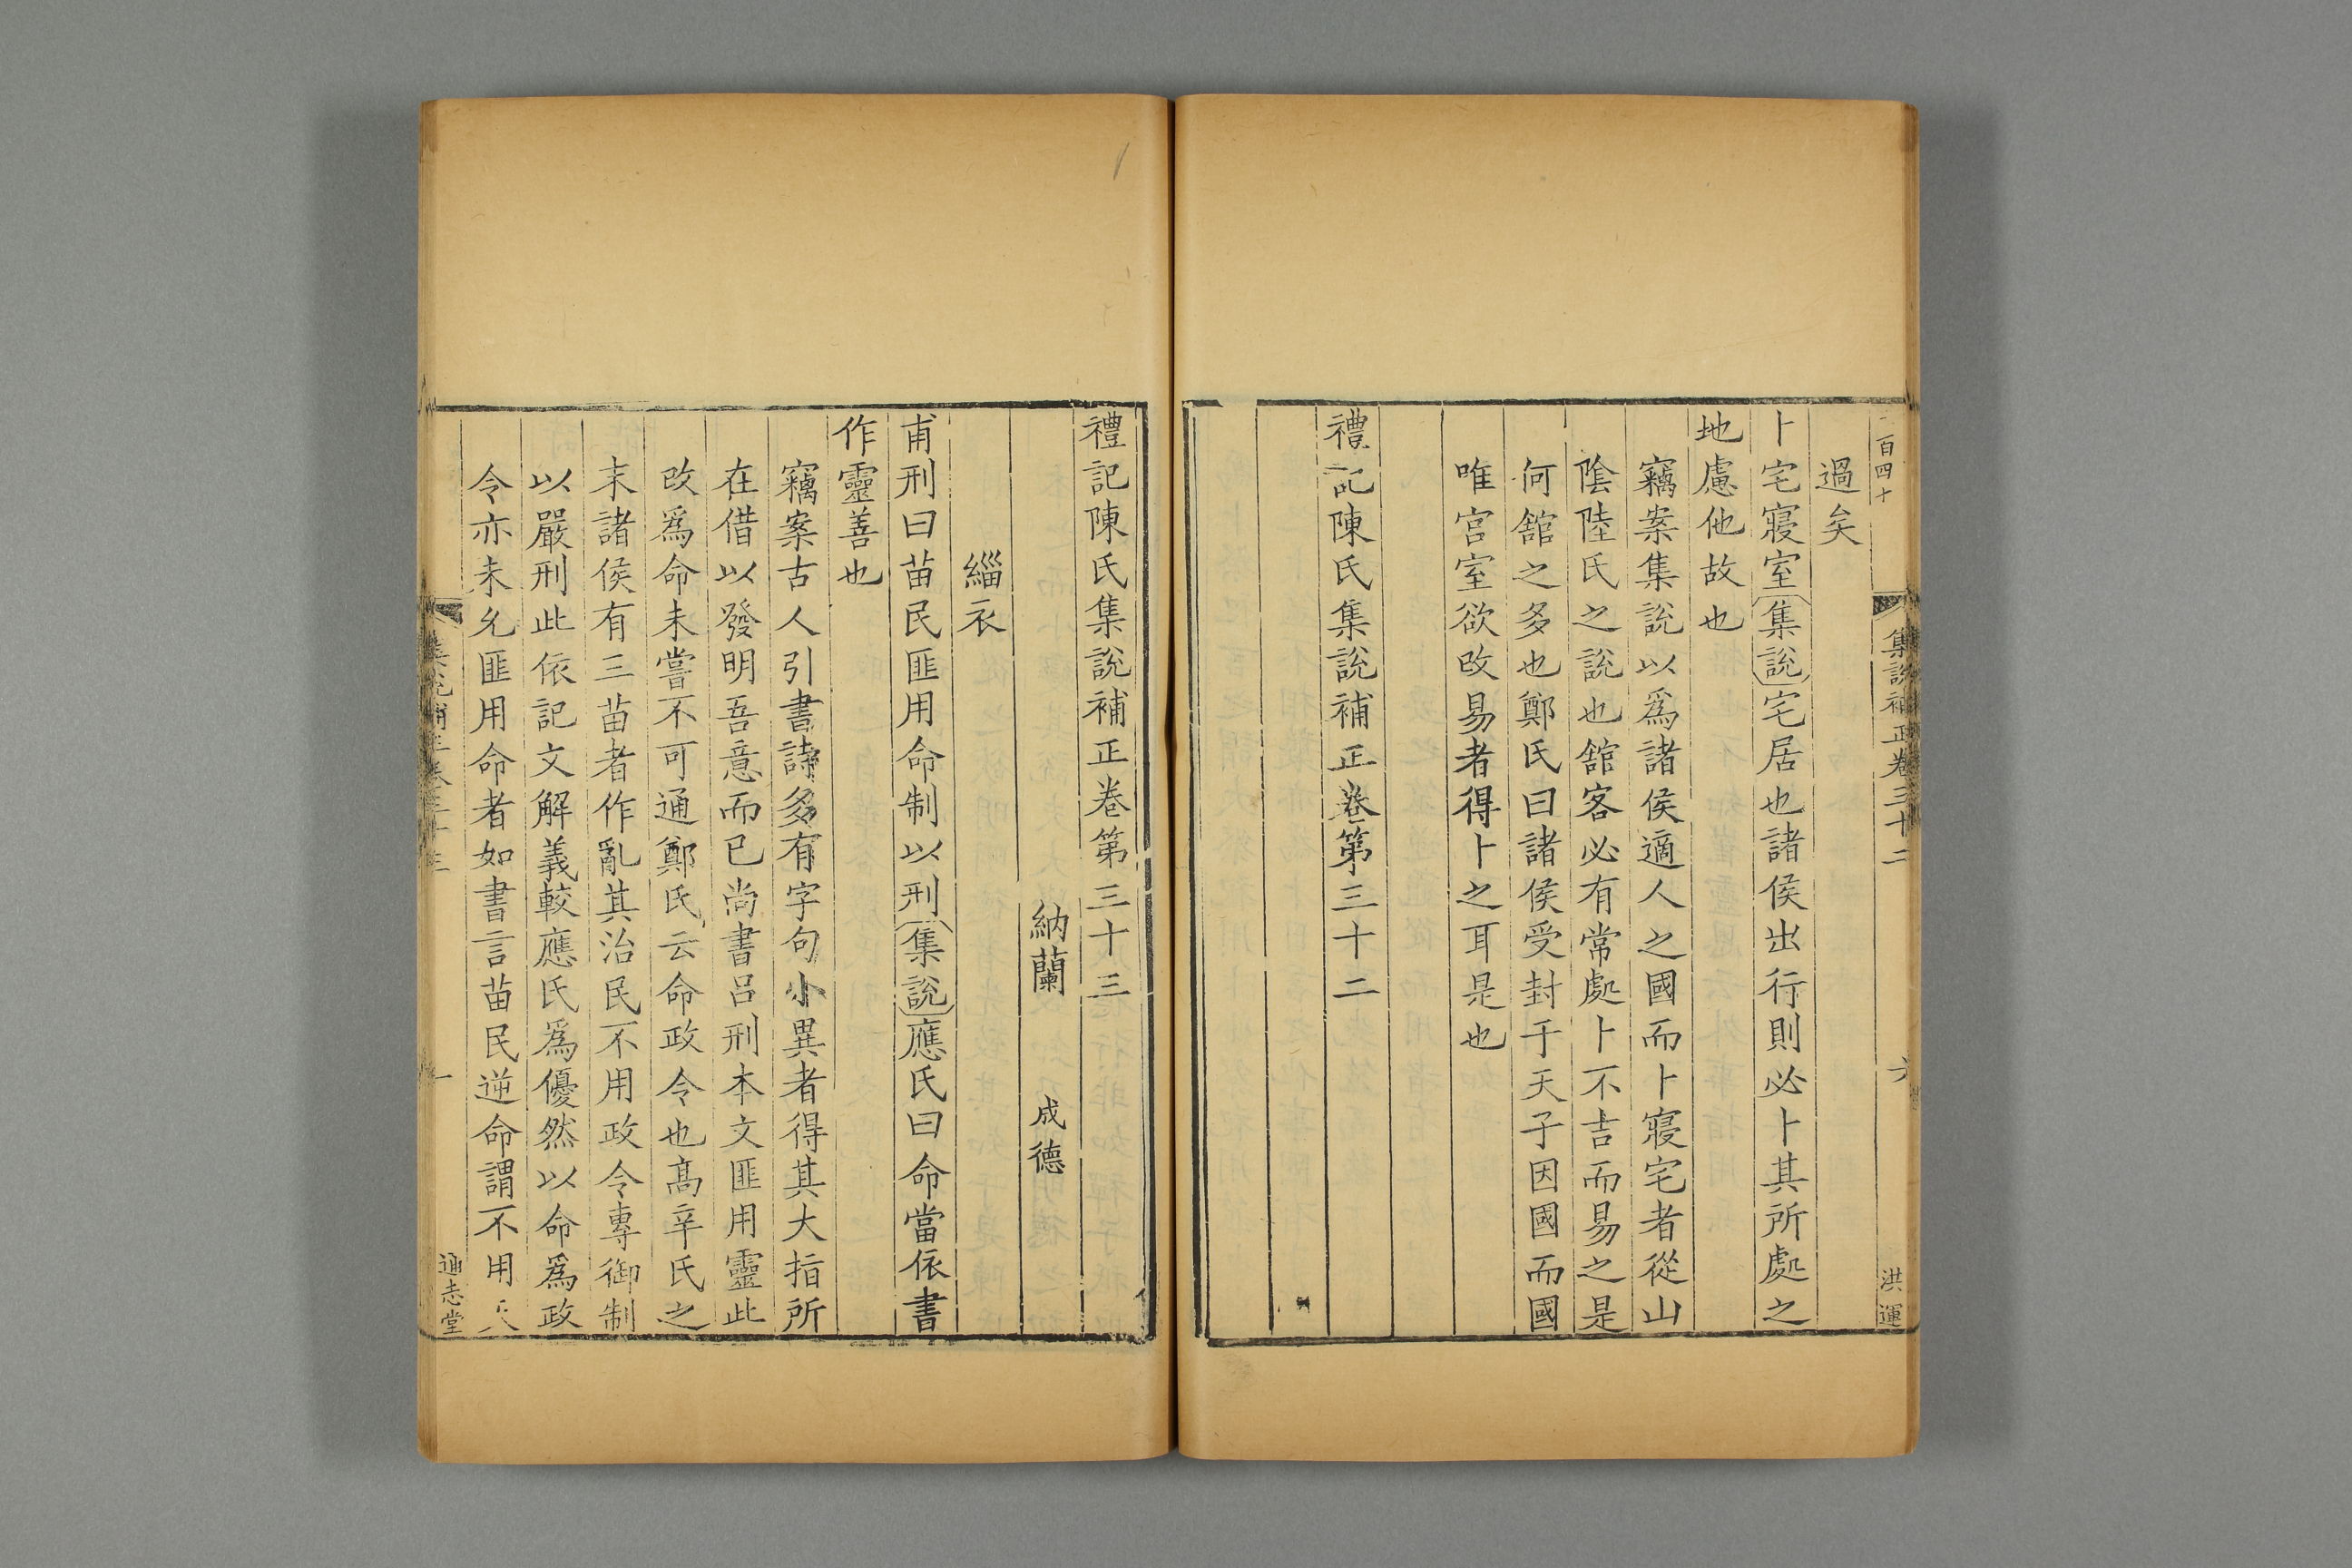 百四十
集說補正卷三十二
六
洪運
過矣
卜宅寢室集說宅居也諸侯出行則必卜其所處之
地慮他故也
竊案集說以爲諸侯適人之國而卜寢宅者從山
陰陸氏之說也舘客必有常處卜不吉而易之是
何舘之多也鄭氏曰諸侯受封于天子因國而國
唯宮室欲改易者得卜之耳是也
禮記陳氏集說補正卷第三十二
禮記陳氏集說補正卷第三十三
納蘭 成德
緇衣
甫刑曰苗民匪用命制以刑集說應氏曰命當依書
作靈善也
竊案古人引書詩多有字句小異者得其大指所
在借以發明吾意而已尚書呂刑本文匪用靈此
改爲命未嘗不可通鄭氏云命政令也高辛氏之
末諸侯有三苗者作亂其治民不用政令專御制
以嚴刑此依記文解義較應氏爲優然以命爲政
令亦未允匪用命者如書言苗民逆命謂不用
集說補正卷三十三
一
通志堂